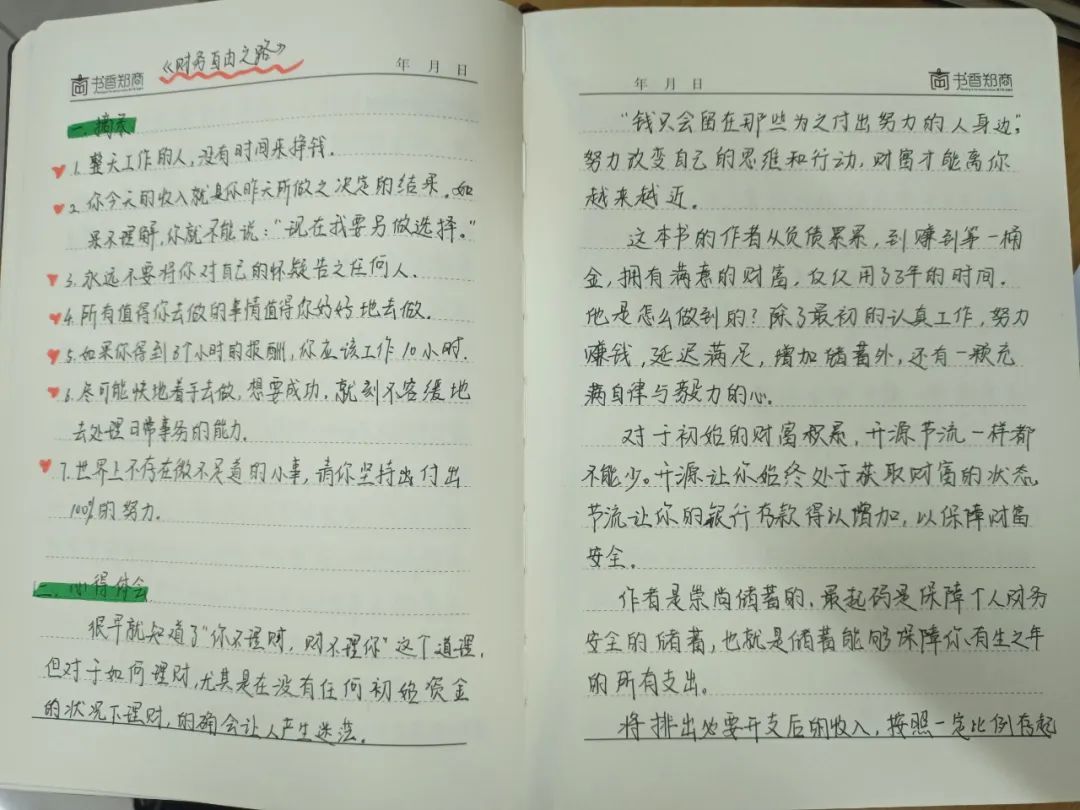 《财务自由之路》
书香郑商
年 月 日
一.摘录
1.整天工作的人,没有时间来挣钱.
2.你今天的收入就是你昨天所做之决定的结果。如
果不理解,你就不能说:“现在我要另做选择。”
3.永远不要将你对自己的怀疑告之任何人.
4.所有值得你去做的事情值得你好好地去做.
5.如果你得到8个小时的报酬,你应该工作10小时.
6.尽可能快地着手去做,想要成功,就到不容缓地
去处理日常事务的能力.
7.世界上不存在微不足道的小事,请你坚持出付出
100%的努力.
二.心得体会
很早就知道了“你不理财,财不理你”这个道理,
但对于如何理财,尤其是在没有任何初始资金
的状况下理财,的确会让人产生迷茫.
年 月 日
书香郑商
“钱只会留在那些为之付出努力的人身边”,
努力改变自己的思维和行动,财富才能离你
越来越近.
这本书的作者从负债累累,到赚到第一桶
金,拥有满意的财富,仅仅用了3年的时间.
他是怎么做到的?除了最初的认真工作,努力
赚钱,延迟满足,增加储蓄外,还有一颗充
满自律与毅力的心.
对于初始的财富积累,开源节流一样都
不能少。开源让你始终处于获取财富的状态,
节流让你的银行存款得以增加,以保障财富
安全.
作者是崇尚储蓄的,最起码是保障个人财务
安全的储蓄,也就是储蓄能够保障你有生之年
的所有支出。
将排出必要开支后的收入,按照一定比例存起